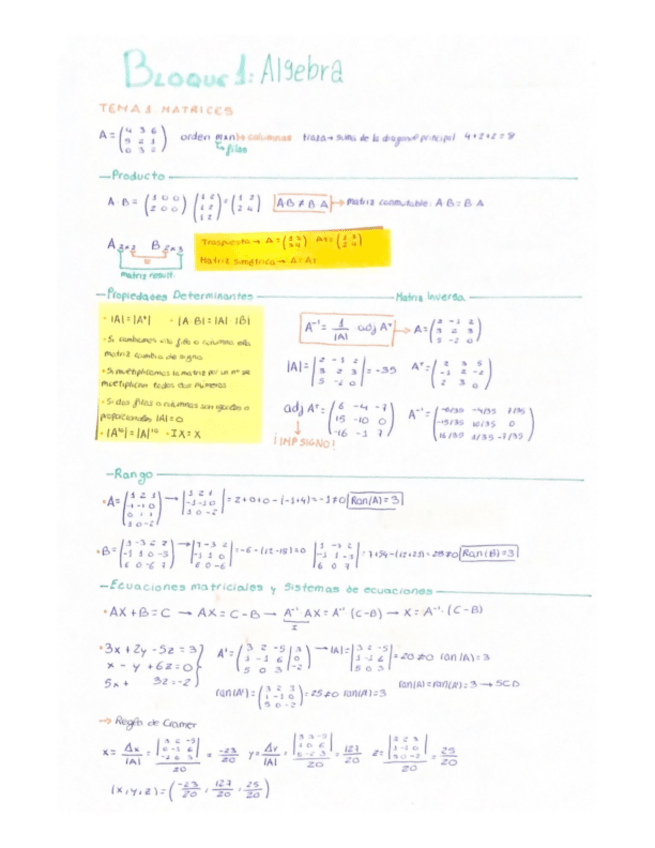 Bloque 1: Algebra
TEMA 1. MATRICES
A = (4 3 6 / 5 2 1 / 0 3 2) orden mxn → columnas traza → suma de la diagonal principal 4+2+2=8
↳ filas
Producto
A·B = (1 0 0 / 2 0 0) (1 2 / 1 2 / 1 2) = (1 2 / 2 4) AB ≠ B·A → Matriz conmutable: A·B = B·A
A 2x2 B 2x3
matriz result.
Traspuesta → A = (1 2 / 3 4) At = (1 3 / 2 4)
Matriz simétrica → A = At
Propiedades Determinantes
· |A| = |Aᵗ| · |A·B| = |A|·|B|
matriz cambia de signo
· Si multiplicamos la matriz por un nº se
multiplican todos sus números
· Si dos filas o columnas son iguales o
proporcionales |A| = 0
· |A¹⁰| = |A|¹⁰ · IX = X
Matriz Inversa
A⁻¹ = 1/|A| adj Aᵗ → A = (2 -1 2 / 3 2 3 / 5 -2 0)
|A| = |2 -1 2 / 3 2 3 / 5 -2 0| = -35 Aᵗ = (2 3 5 / -1 2 -2 / 2 3 0)
adj Aᵗ = (6 -4 -7 / 15 -10 0 / -16 -1 7) A⁻¹ = (-6/35 -4/35 7/35 / -15/35 10/35 0 / 16/35 1/35 -7/35)
¡IMP SIGNO!
Rango
· A = (1 2 1 / -1 -1 0 / 0 1 1 / 1 0 -2) → |1 2 1 / -1 -1 0 / 1 0 -2| = 2+0+0-(-1+4) = -1 ≠ 0 Ran(A) = 3
Ran(B) = 3
Ecuaciones matriciales y Sistemas de ecuaciones
· AX + B = C → AX = C - B → A⁻¹·AX = A⁻¹ (C-B) → X = A⁻¹·(C-B)
I
· 3x + 2y - 5z = 3
x - y + 6z = 0
5x + 3z = -2
A' = (3 2 -5 | 3 / 1 -1 6 | 0 / 5 0 3 | -2) → |A| = |3 2 -5 / 1 -1 6 / 5 0 3| = 20 ≠ 0 ran(A) = 3
ran(A') = (3 2 3 / 1 -1 0 / 5 0 -2) = 25 ≠ 0 ran(A') = 3 ran(A) = ran(A') = 3 → SCD
→ Regla de Cramer
x = Δx/|A| = |3 2 -5 / 0 -1 6 / -2 0 3| / 20 = -23/20 y = Δy/|A| = |3 3 -5 / 1 0 6 / 5 -2 3| / 20 = 127/20 z = |3 2 3 / 1 -1 0 / 5 0 -2| / 20 = 25/20
(x, y, z) = (-23/20, 127/20, 25/20)